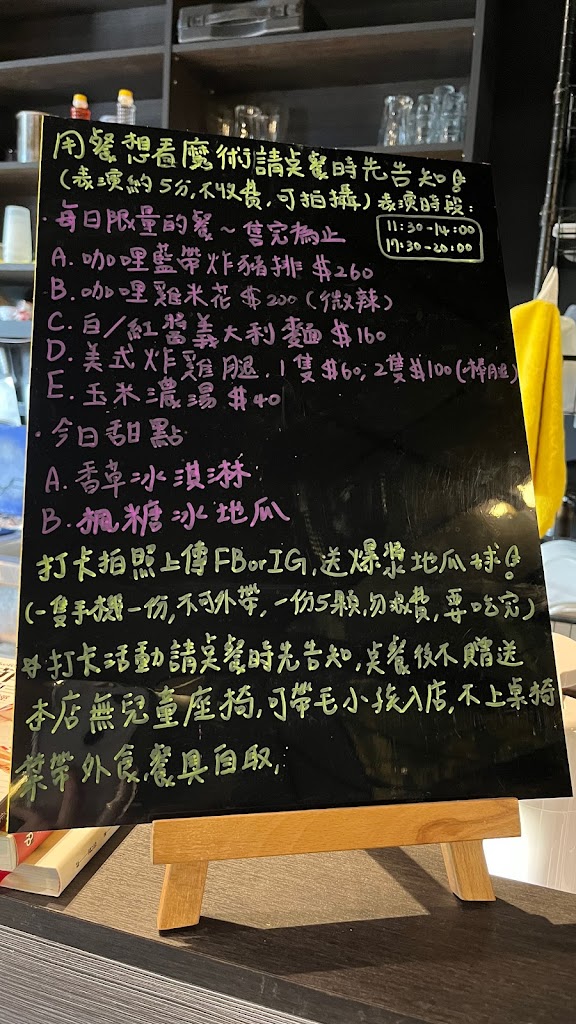 用餐想看魔術請點餐時先告知!
(表演約5分,不收費,可拍攝)表演時段:
11:30-14:00
17:30-20:00
·每日限量的餐~售完為止
A. 咖哩藍帶炸豬排 $260
B. 咖哩雞米花 $200 (微辣)
C. 白/紅醬義大利麵 $160
D. 美式炸雞腿.1隻$60,2隻$100(棒腿)
E. 玉米濃湯 $40
·今日甜點
A. 香草冰淇淋
B. 楓糖冰地瓜
打卡拍照上傳FBorIG,送爆漿地瓜球!
(一隻手機一份,不可外帶,一份5顆,勿浪費,要吃完)
打卡活動請点餐時先告知,点餐後不贈送
本店無兒童座椅,可帶毛小孩入店,不上桌椅
禁帶外食,餐具自取,